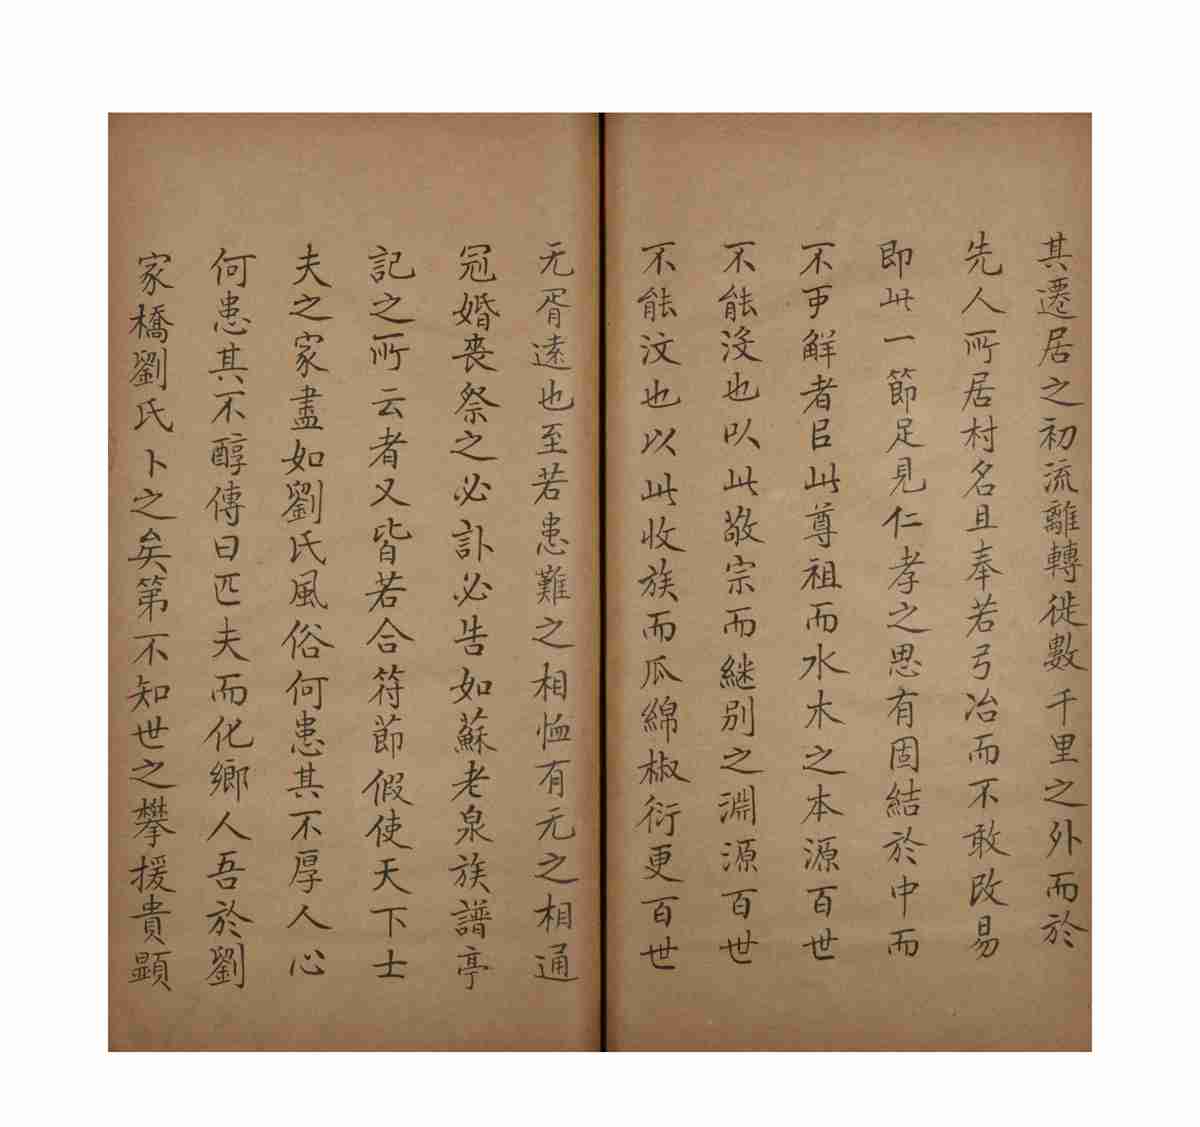 其遷居之初流離轉徙數千里之外而於
先人所居村名且奉若弓冶而不敢改易
即此一節足見仁孝之思有固結於中而
不可觧者㠯此尊祖而水木之本源百世
不能没也以此敬宗而継别之淵源百世
不能汶也以此收族而瓜綿椒衍更百世
无胥遠也至若患難之相恤有无之相通
冠婚喪祭之必訃必告如蘇老泉族譜亭
記之所云者又皆若合符節假使天下士
夫之家盡如劉氏風俗何患其不厚人心
何患其不醇傳曰匹夫而化鄉人吾於劉
家橋劉氏卜之矣第不知世之攀援貴顯